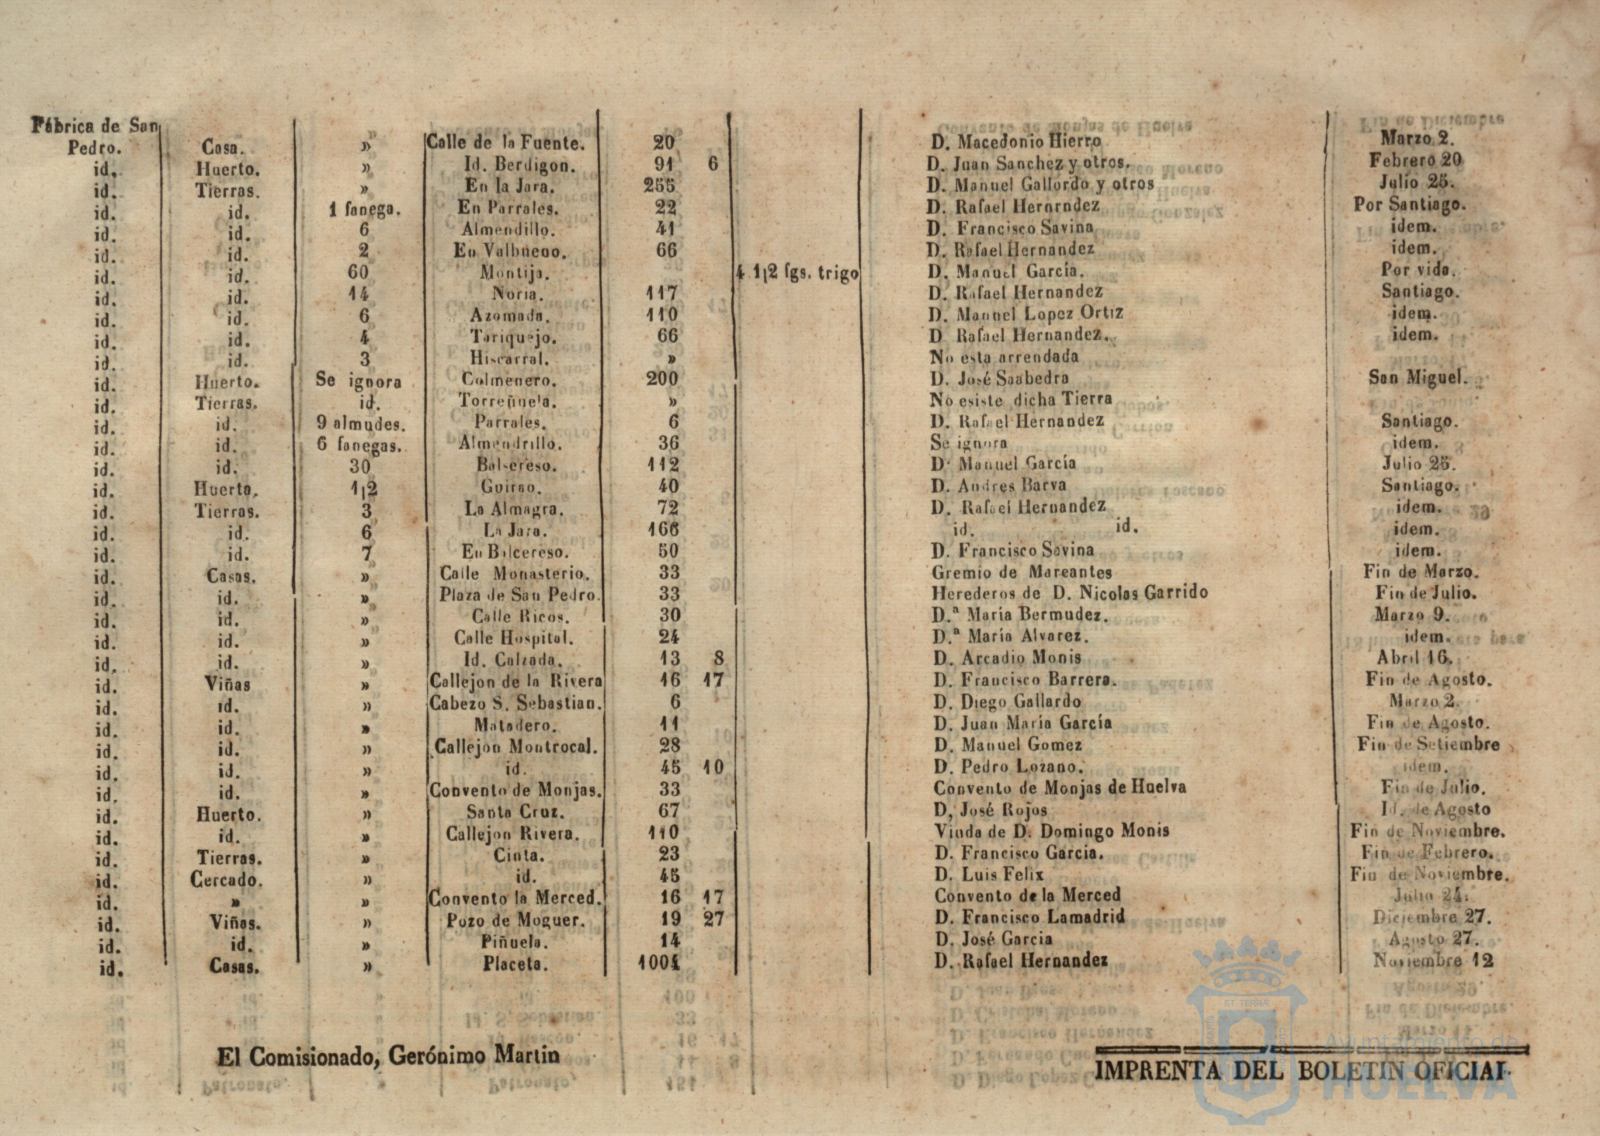 Fábrica de San
Pedro. Casa. » Calle de la Fuente. 20 D. Macedonio Hierro Marzo 2.
id. Huerto. » Id. Berdigon. 91 6 D. Juan Sanchez y otros. Febrero 20
id. Tierras. » En la Jara. 255 D. Manuel Gallordo y otros Julio 25.
id. id. 1 fanega. En Parrales. 22 D. Rafael Hernrndez Por Santiago.
id. id. 6 Almendillo. 41 D. Francisco Savina idem.
id. id. 2 En Valbueno. 66 D. Rafael Hernandez idem.
id. id. 60 Montija. 4 1|2 fgs. trigo D. Manuel García. Por vida.
id. id. 14 Noria. 117 D. Rafael Hernandez Santiago.
id. id. 6 Azomada. 110 D. Manuel Lopez Ortiz idem.
id. id. 4 Tariquejo. 66 D Rafael Hernandez. idem.
id. id. 3 Hiscarral. » No esta arrendada
id. Huerto. Se ignora Colmenero. 200 D. José Saabedra San Miguel.
id. Tierras. id. Torreñuela. » No esiste dicha Tierra
id. id. 9 almudes. Parrales. 6 D. Rafael Hernandez Santiago.
id. id. 6 fanegas. Almendrillo. 36 Se ignora idem.
id. id. 30 Balsereso. 112 D. Manuel García Julio 25.
id. Huerto. 1|2 Guirao. 40 D. Andres Barva Santiago.
id. Tierras. 3 La Almagra. 72 D. Rafael Hernandez idem.
id. id. 6 La Jara. 166 id. id. idem.
id. id. 7 En Balcereso. 50 D. Francisco Savina idem.
id. Casas. » Calle Monasterio. 33 Gremio de Mareantes Fin de Marzo.
id. id. » Plaza de San Pedro. 33 Herederos de D. Nicolas Garrido Fin de Julio.
id. id. » Calle Ricos. 30 D.ª María Bermudez. Marzo 9.
id. id. » Calle Hospital. 24 D.ª María Alvarez. idem.
id. id. » Id. Calzada. 13 8 D. Arcadio Monis Abril 16.
id. Viñas » Callejon de la Rivera 16 17 D. Francisco Barrera. Fin de Agosto.
id. id. » Cabezo S. Sebastian. 6 D. Diego Gallardo Marzo 2.
id. id. » Matadero. 11 D. Juan María García Fin de Agosto.
id. id. » Callejon Montrocal. 28 D. Manuel Gomez Fin de Setiembre
id. id. » id. 45 10 D. Pedro Lozano. idem.
id. id. » Convento de Monjas. 33 Convento de Monjas de Huelva Fin de Julio.
id. Huerto. » Santa Cruz. 67 D, José Rojos Id. de Agosto
id. id. » Callejon Rivera. 110 Viuda de D. Domingo Monis Fin de Noviembre.
id. Tierras. » Cinta. 23 D. Francisco Garcia. Fin de Febrero.
id. Cercado. » id. 45 D. Luis Felix Fin de Noviembre.
id. » » Convento la Merced. 16 17 Convento de la Merced Julio 24.
id. Viñas. » Pozo de Moguer. 19 27 D. Francisco Lamadrid Diciembre 27.
id. id. » Piñuela. 14 D. José Garcia Agosto 27.
id. Casas. » Placeta. 1001 D. Rafael Hernandez Noviembre 12
El Comisionado, Gerónimo Martin
IMPRENTA DEL BOLETIN OFICIAL
Ayuntamiento de
HUELVA